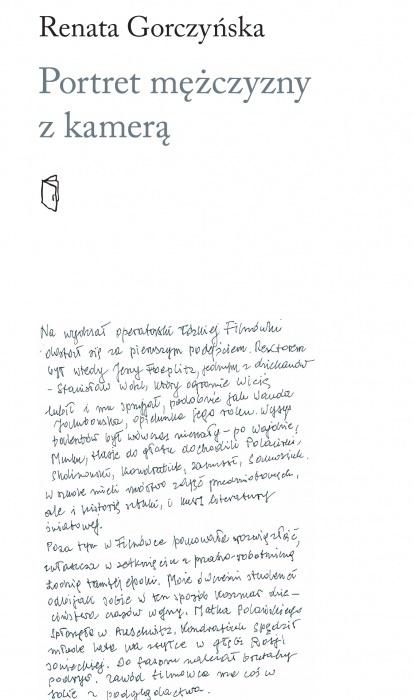 Renata Gorczyńska
Portret mężczyzny
z kamerą
Na wydział operatorski łódzkiej Filmówki
dostał się za pierwszym podejściem. Rektorem
był wtedy Jerzy Toeplitz, jednym z dziekanów
– Stanisław Wohl, który ogromnie Wicię
lubił i mu sprzyjał, podobnie jak Wanda
Jakubowska, opiekunka jego roku. Wysyp
talentów był wówczas niemały – po Wajdzie,
Munku, Hasie do głosu dochodzili Polański,
Skolimowski, Kondratiuk, Zanussi,
W szkole mieli mnóstwo zajęć przedmiotowych,
ale i historię sztuki, i kurs literatury
światowej.
Poza tym w Filmówce panowała rozwiązłość,
zwłaszcza w zetknięciu z pruderią robotniczą
Łodzią tamtej epoki. Może ówcześni studenci
odbijali sobie w ten sposób koszmar dzie–
ciństwa czasów wojny. Matka Polańskiego
spłonęła w Auschwitz, Kondratiuk spędził
młode lata na zsyłce w głębi Rosji
sowieckiej. Do fasonu należał brutalny
podryw. Zawód filmowca ma coś w
sobie z podglądactwa.